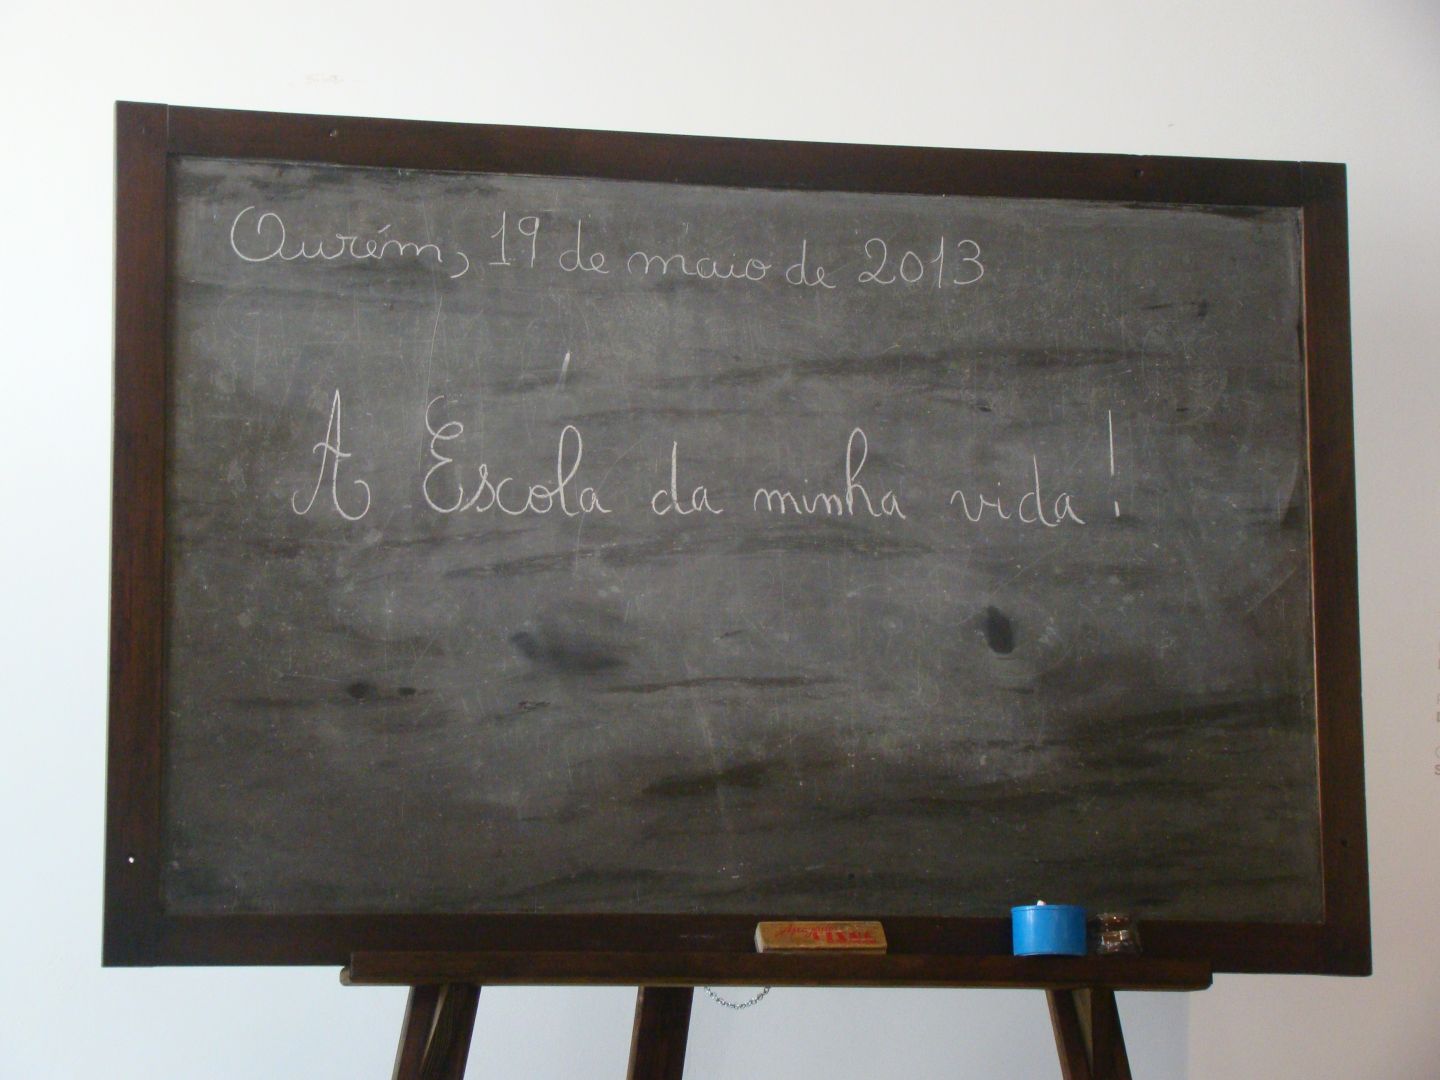 Ourém, 19 de maio de 2013
A Escola da minha vida!